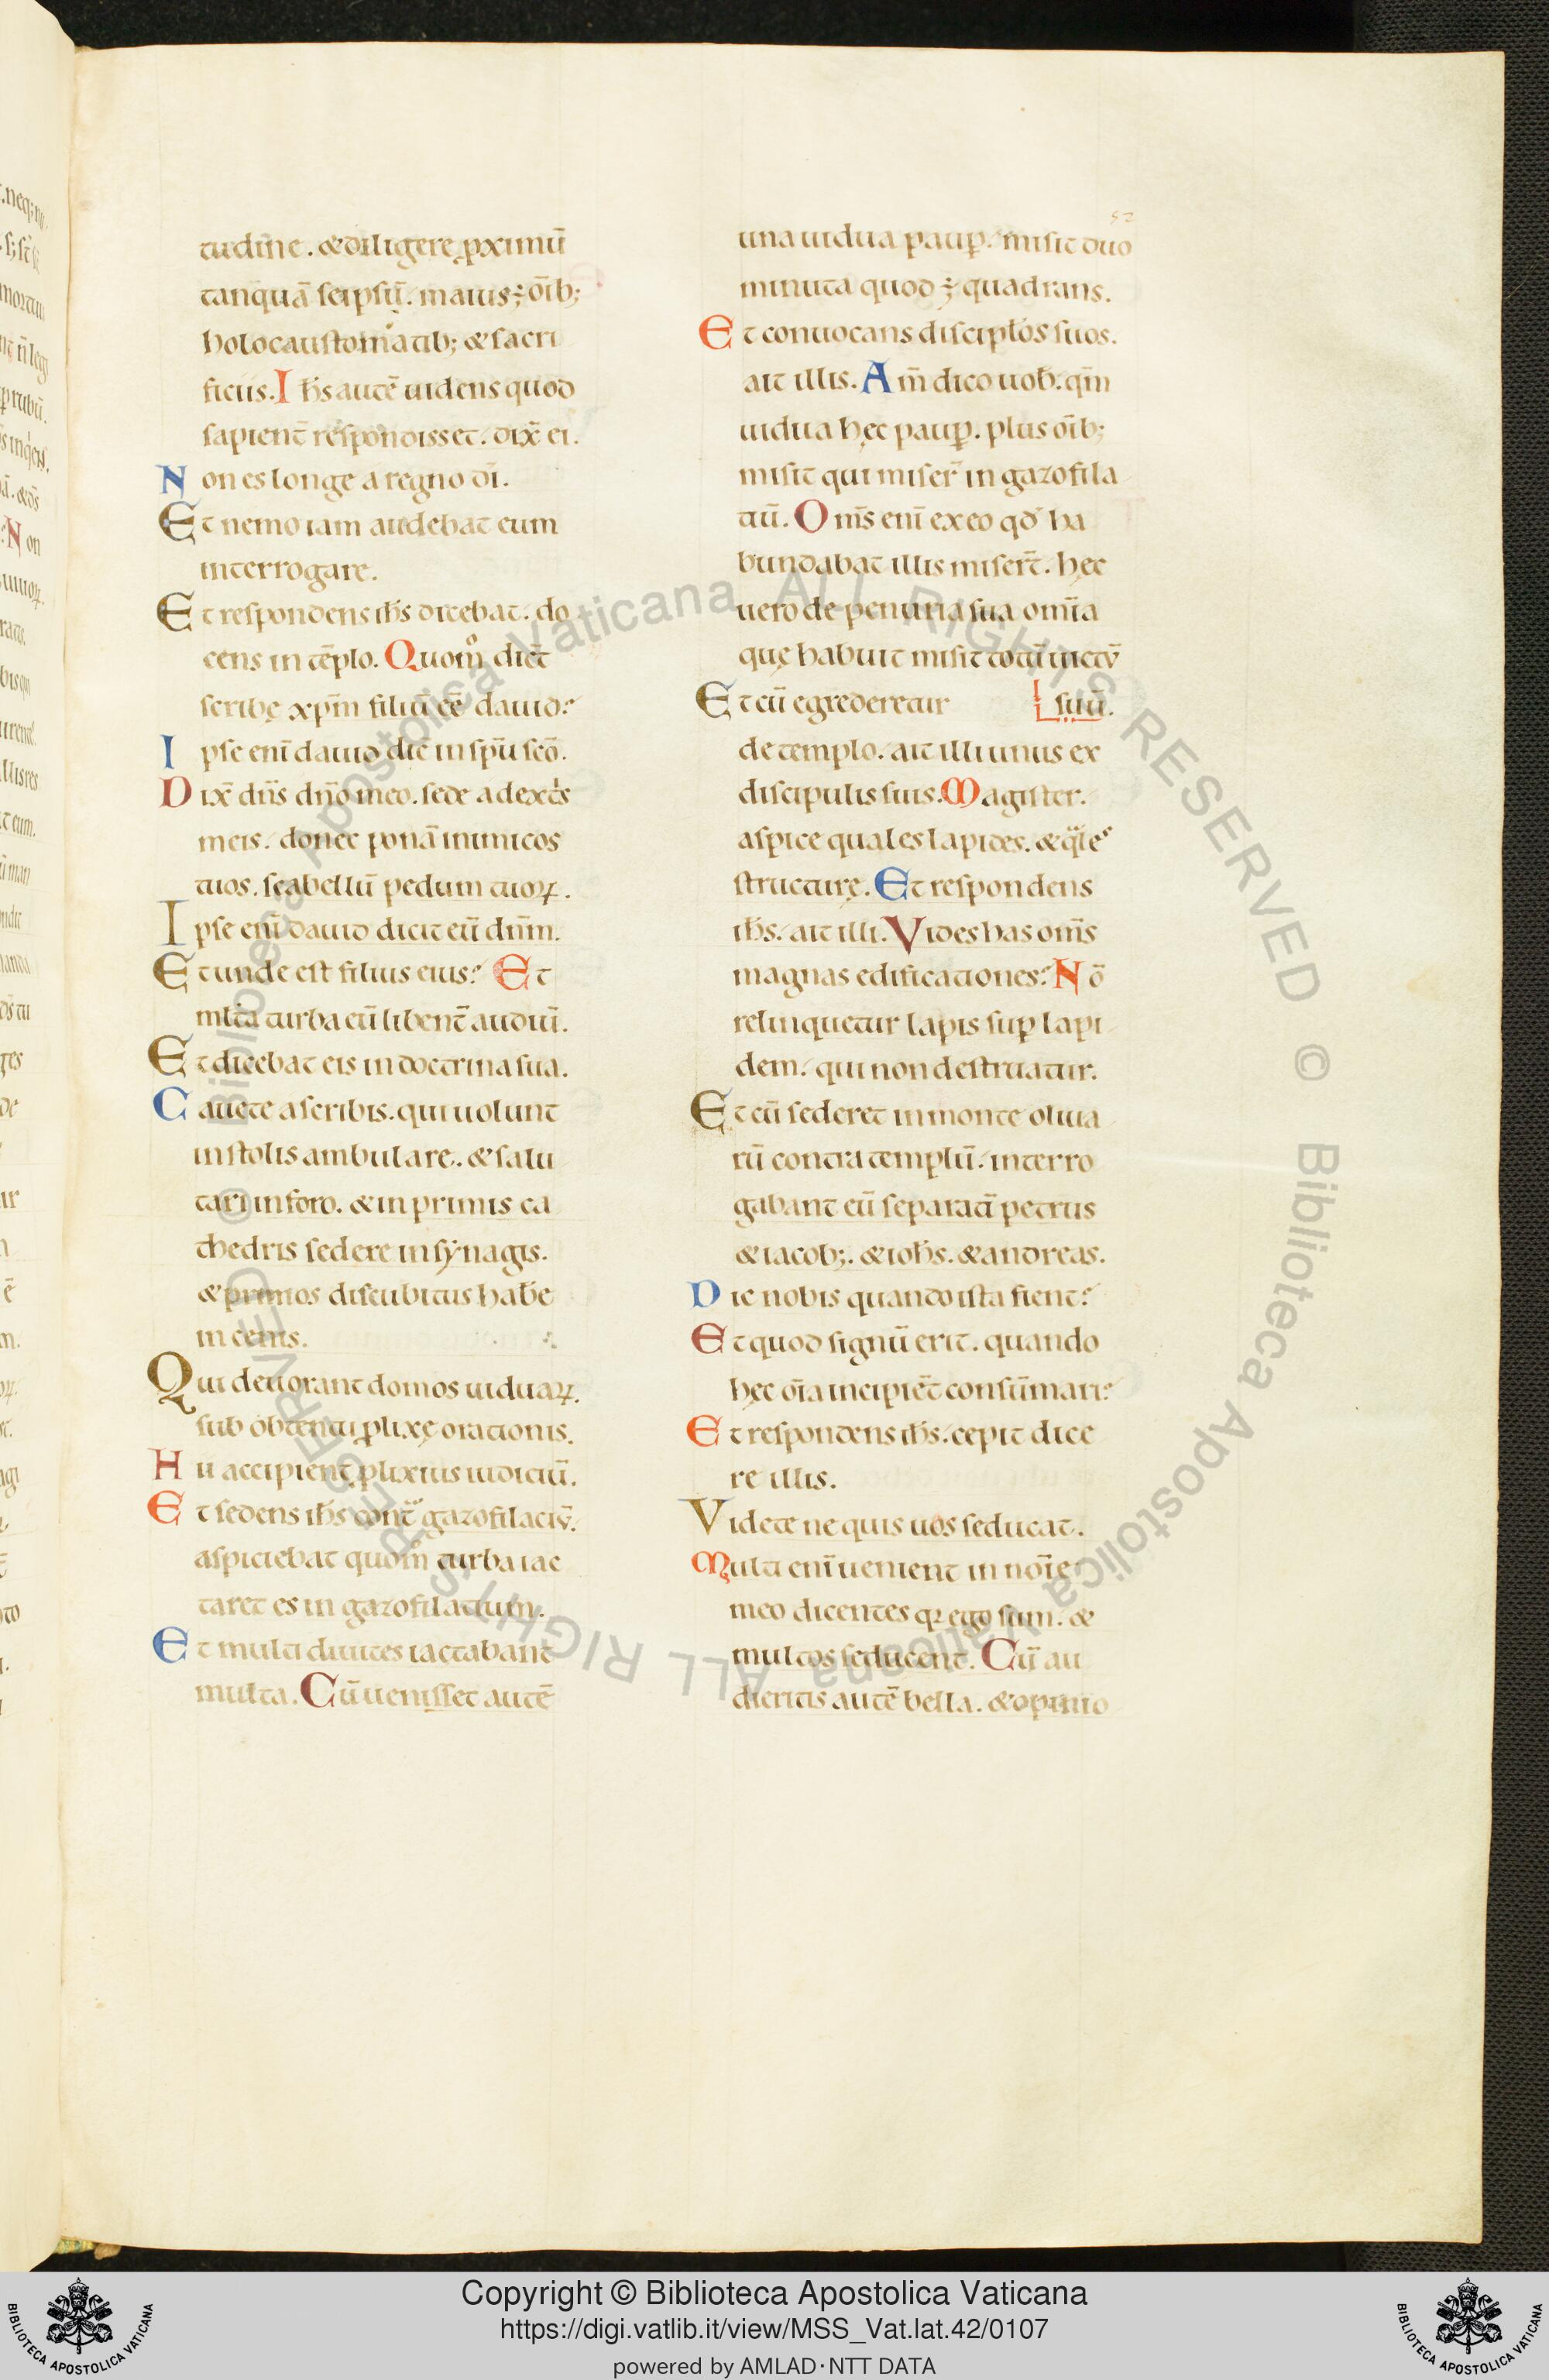 52
tudine. & diligere ꝓximū
tanquā seipsū. maius ÷ oīb;
holocaustomatib; & sacri
ficiis. Ihs̄ autē uidens quod
sapient̄ respondisset. dix̄ ei.
Non es longe a regno dī.
Et nemo iam audebat eum
interrogare.
Et respondens ihs̄ dicebat. do
cens in tēplo. Quom̊ dict̄
scribę xpm̄ filiū eē dauid?
Ipse enī dauid dic̄ in spū scō.
Dix̄ dn̄s dn̄o meo. sede a dextͥs
meis. donec ponā inimicos
tuos. scabellū pedum tuoꝝ.
Ipse enī dauid dicit eū dn̄m.
Et unde est filius eius? Et
mlta turba eū libent̄ audiuī.
Et dicebat eis in doctrina sua.
Cauete a scribis. qui uolunt
in stolis ambulare. & salu
tari in foro. & in primis ca
thedris sedere in sẏnagis.
& primos discubitus habe
in cenis.
Qui deuorant domos uiduaꝝ.
sub obtentu ꝓlixę orationis.
Hii accipient ꝓlixius iudiciū.
Et sedens ihs̄ cont̄ gazofilaciv̄.
aspiciebat quom̄ turba iac
taret es in gazofilatium.
Et multi diuites iactabant
multa. Cū uenisset autē
una uidua paup̱. misit duo
minuta quod ÷ quadrans.
Et conuocans discipłos suos.
ait illis. Am̄ dico uob̄. qm̄
uidua hęc paup̱. plus oīb;
misit qui miser̄ in gazofila
tiū. Om̄s enī ex eo qđ ha
bundabat illis misert̄. hęc
uero de penuria sua omīa
quę habuit misit totū uictv̄
Et cū egrederetur suū.
de templo. ait illi unus ex
discipulis suis. Magister.
aspice quales lapides. & qͣles
structurę. Et respondens
ihs̄. ait illi. Vides has om̄s
magnas edificationes? Nō
relinquetur lapis sup̱ lapi
dem. qui non destruatur.
Et cū sederet in monte oliua
rū contra templū. interro
gabant eū separatī petrus
& iacob;. & ioħs. & andreas.
Dic nobis quando ista fient?
Et quod signū erit. quando
hęc oīa incipiēt consūmari?
Et respondens ihs̄. cepit dice
re illis.
Videte ne quis uos seducat.
Multi enī uenient in noīe
meo dicentes qꝛ ego sum. &
multos seducent. Cū au
dieritis autē bella. & opinio
Copyright © Biblioteca Apostolica Vaticana
https://digi.vatlib.it/view/MSS_Vat.lat.42/0107
powered by AMLAD·NTT DATA
BIBLIOTECA APOSTOLICA VATICANA
BIBLIOTECA APOSTOLICA VATICANA
© Biblioteca Apostolica Vaticana ALL RIGHTS RESERVED © Biblioteca Apostolica Vaticana ALL RIGHTS RESERVED